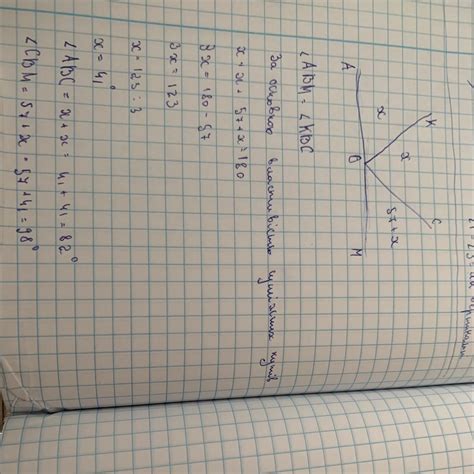 A
x
K
B
x
57+x
C
M
∠ABK = ∠KBC
За основною властивістю суміжних кутів
x + x + 57 + x = 180
3x = 180 - 57
3x = 123
x = 123 : 3
x = 41°
∠ABC = x + x = 41 + 41 = 82°
∠CBM = 57 + x = 57 + 41 = 98°